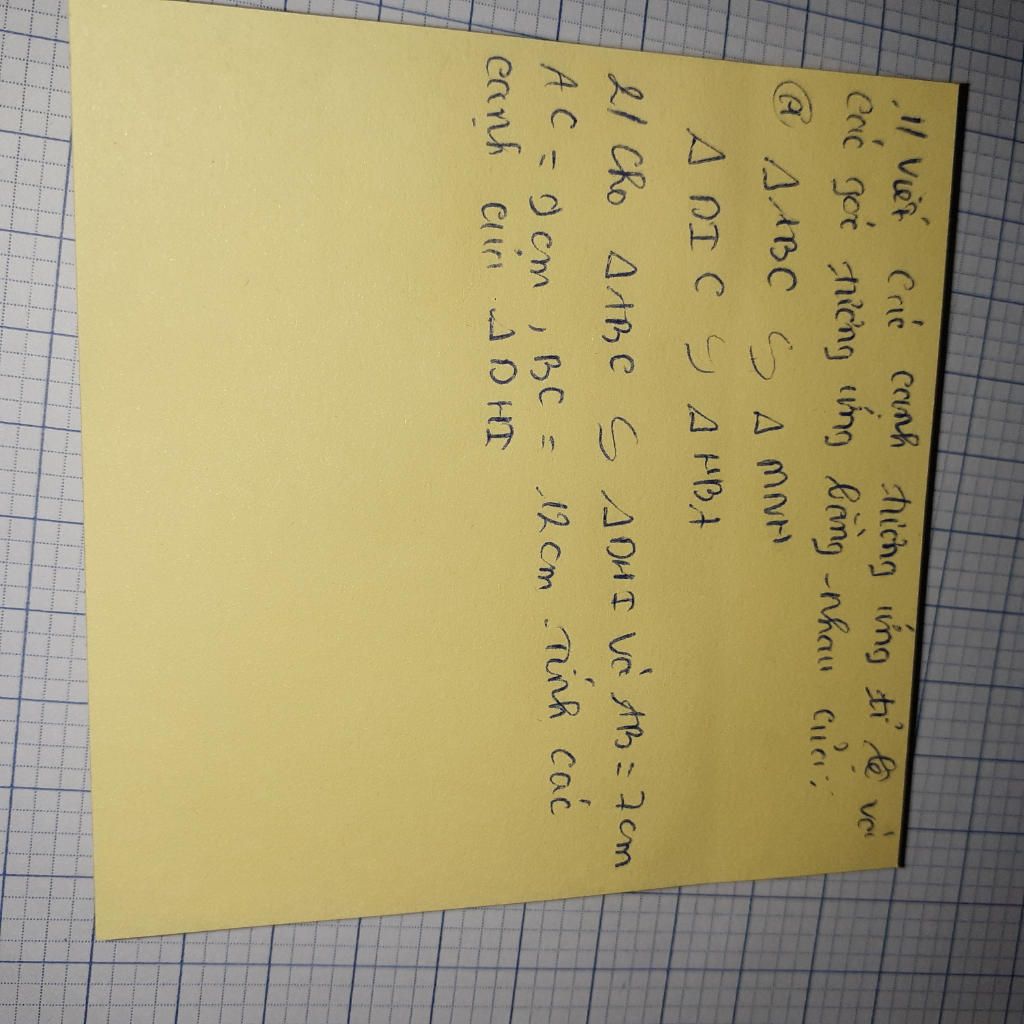 1/ Viết các cạnh tương ứng tỉ lệ và
các góc tương ứng bằng nhau của:
a ΔABC S Δ MNH
Δ DIC S Δ HBA
2/ Cho ΔABC S ΔDHI và AB = 7cm
AC = 9cm, BC = 12cm. Tính các
cạnh của ΔDHI